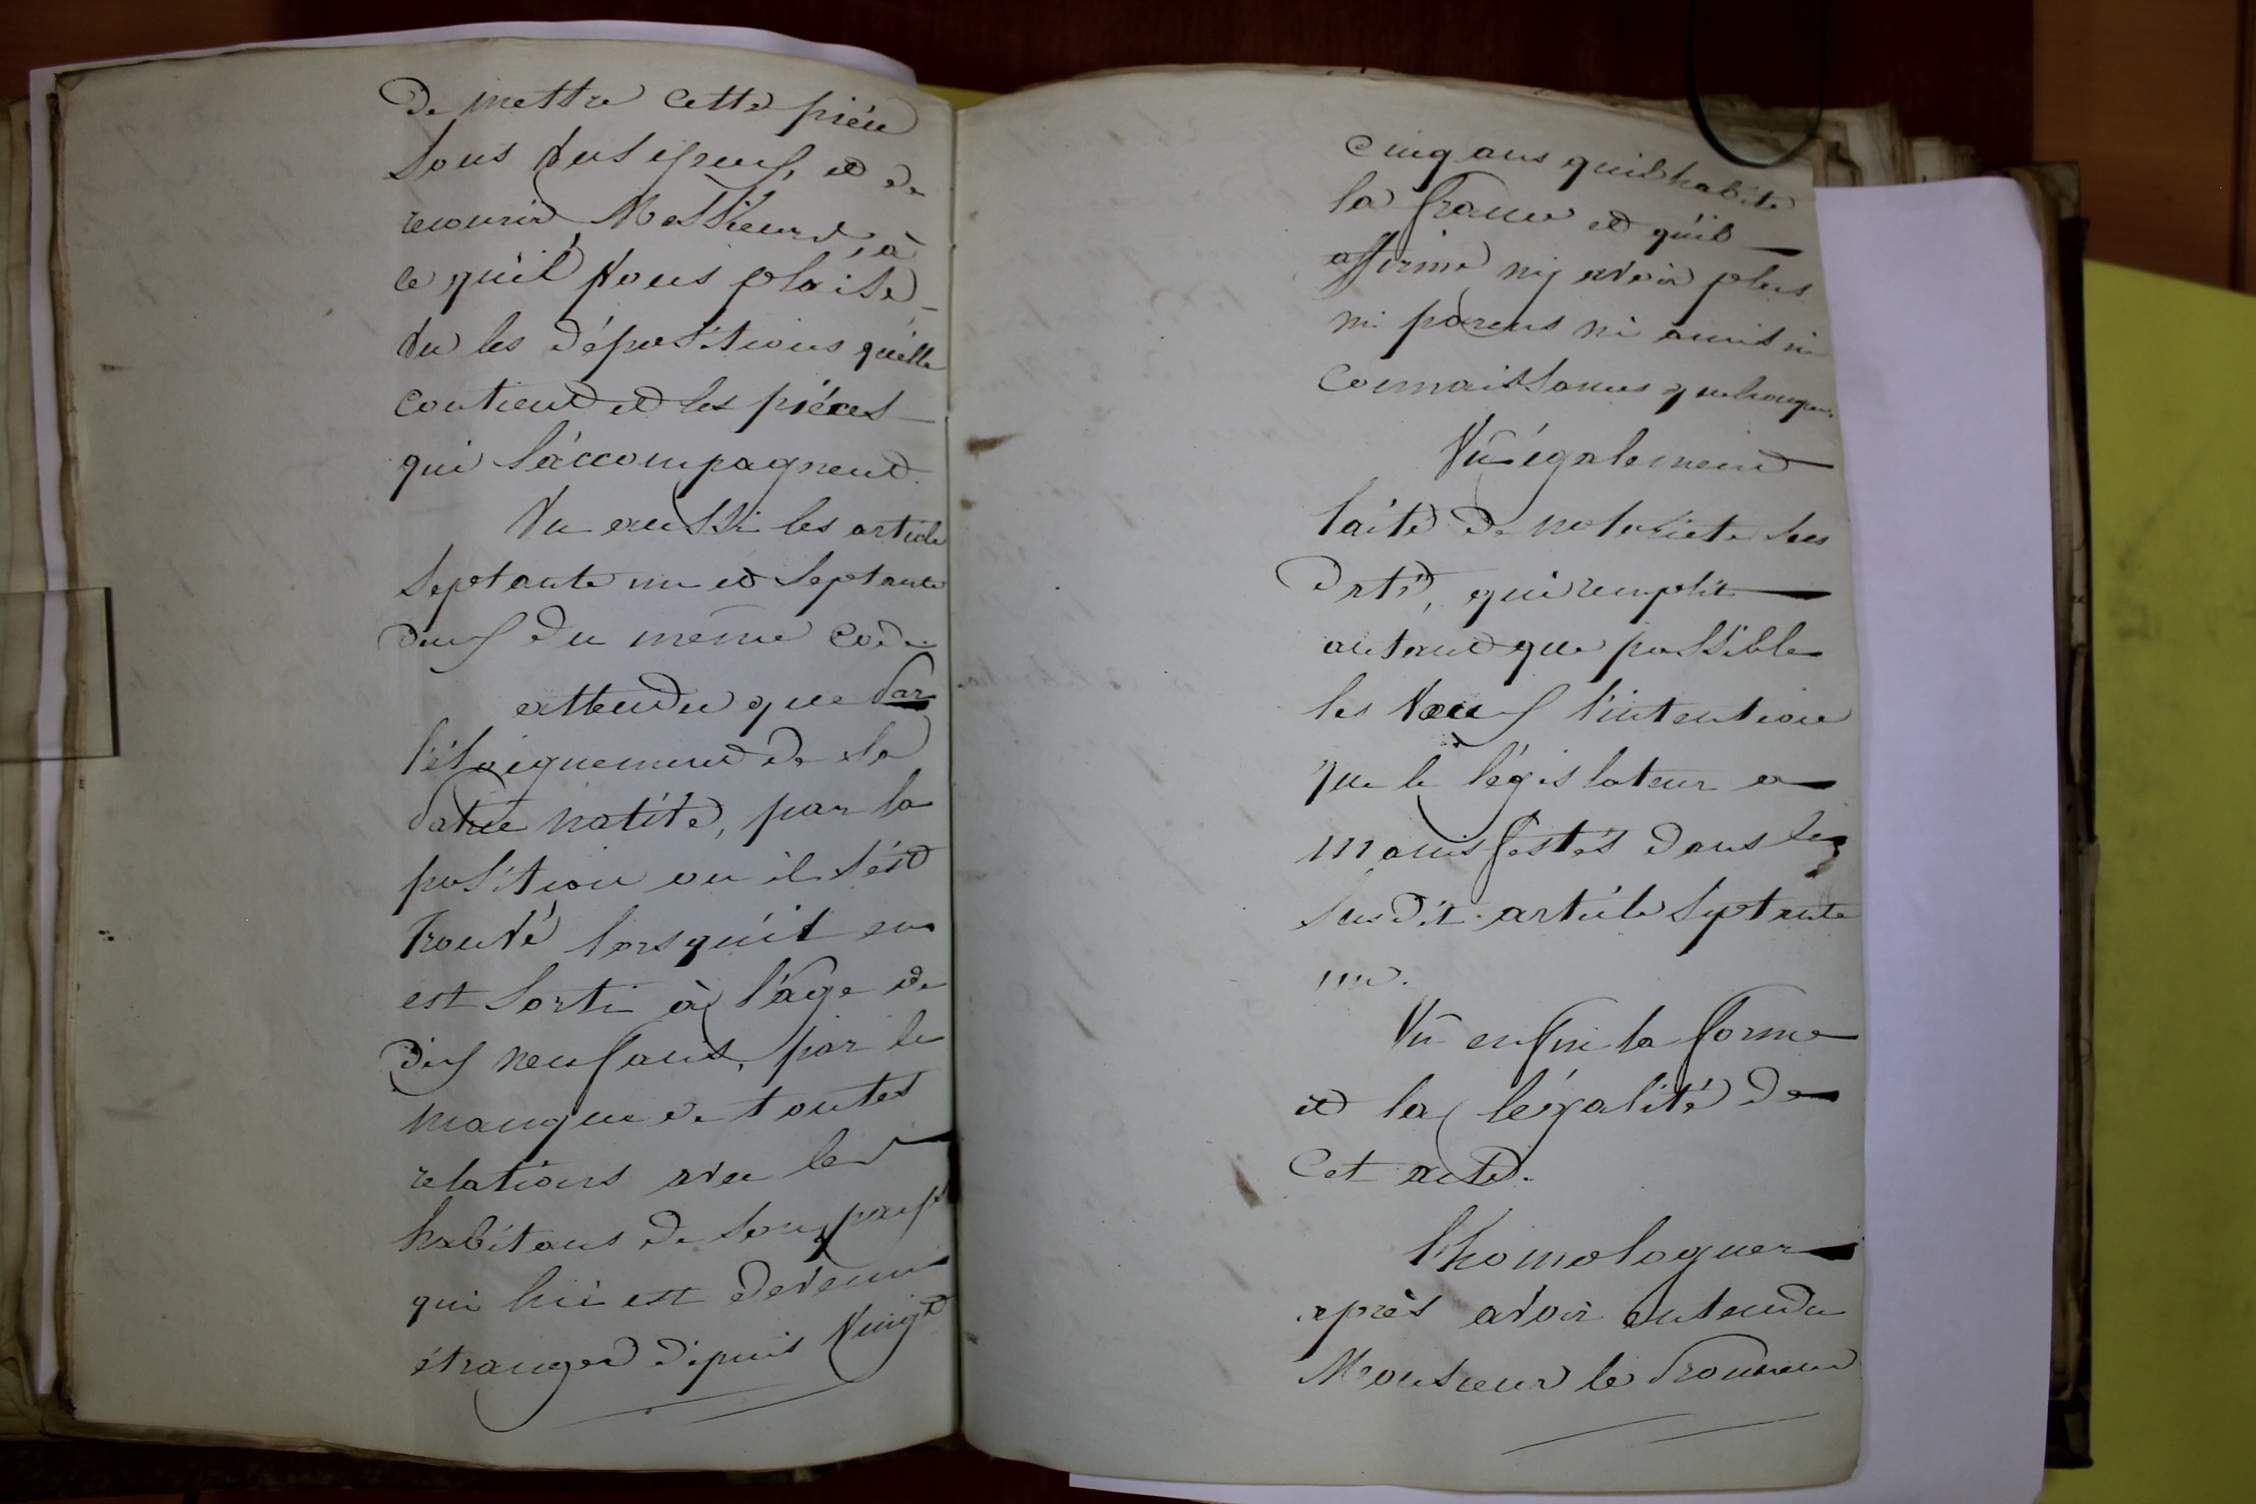 de mettre cette piéce
sous vus yeux, et de
recourir, Messieurs, à
ce qu'il vous plaise
vu les dépositions qu'elle
contient et les piéces
qui l'accompagnent.
Vu aussi les article
septante un et septante
deux du même code
attendu que par
l'éloignement de sa
patrie natite, par la
position ou il s'est
trouvé lorsqu'il en
est sorti à l'age de
dix neuf ans, par le
manque de toutes
relations avec les
habitans de son pays
qui lui est devenu
étranger depuis vingt
cinq ans qu'il habite
la france et qu'il
affirme n'y avoir plus
ni parens ni amis ni
connaissances quelconques.
Vû également
l'acte de notoriete sus
daté, qui remplit
autant que possible
les vœux l'intention
que le législateur a
manifestés dans le
susdit article septante
un.
Vû enfin la forme
et la légalité de
cet acte.
l'homologuer
après avoir entendu
Monsieur le Procureur